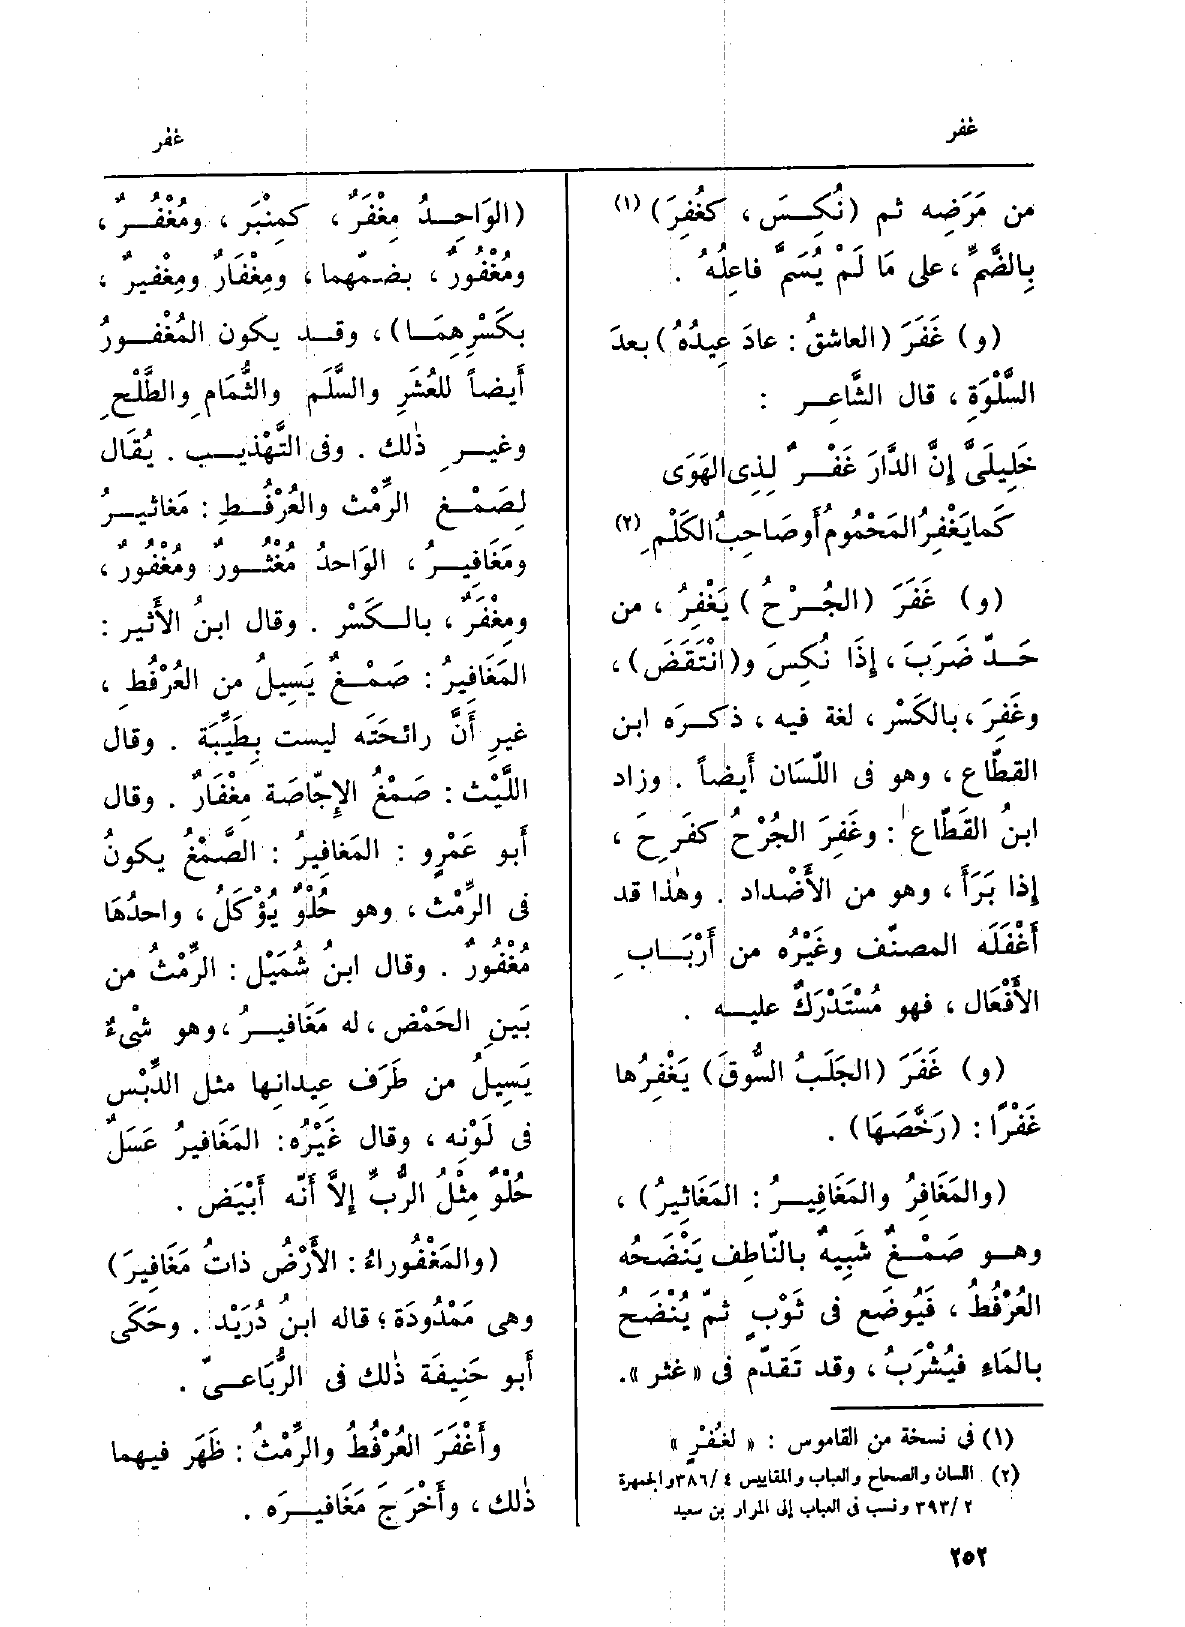 غفر
غفر
من مَرَضِه ثم (نُكِسَ ، كغُفِرَ) (١)
بِالضَّمِّ ، على مَا لَمْ يُسَمَّ فاعِلُهُ .
(و) غَفَرَ (العاشقُ : عادَ عِيدُهُ) بعدَ
السَّلْوَةِ ، قال الشَّاعِر :
خَلِيلَىَّ إِنَّ الدَّارَ غَفْرٌ لِذِى الهَوَى
كَما يَغْفِرُ المَحْمُومُ أَو صَاحِبُ الكَلْمِ (٢)
(و) غَفَرَ (الجُرْحُ) يَغْفِرُ ، من
حَدّ ضَرَبَ ، إِذَا نُكِسَ و(انْتَقَضَ) ،
وغَفِرَ ، بالكَسْر ، لغة فيه ، ذكَرَه ابن
القطّاع ، وهو فى اللّسَان أيضاً . وزاد
ابنُ القَطّاع : وغَفِرَ الجُرْحُ كفَرِحَ ،
إِذا بَرَأَ ، وهو من الأَضْداد . وهٰذا قد
أَغْفَلَه المصنّف وغَيْرُه من أَرْبَابِ
الأَفْعَال ، فهو مُسْتَدْرَكٌ عليه .
(و) غَفَرَ (الجَلَبُ السُّوقَ) يَغْفِرُها
غَفْرًا : (رَخَّصَهَا) .
(والمَغَافِرُ والمَغَافِيرُ : المَغَاثِيرُ) ،
وهو صَمْغٌ شَبِيهٌ بالنّاطِف يَنْضَحُه
العُرْفُطُ ، فَيُوضَع فى ثَوْبٍ ثمّ يُنْضَحُ
بالمَاءِ فيُشْرَبُ ، وقد تَقدّم فى « غثر ».
(١) فى نسخة من القاموس : « لغُفِرَ »
(٢) اللسان والصحاح والعباب والمقاييس ٤ /٣٨٦ والجمهرة
٢ /٣٩٣ ونسب فى العباب إلى المرار بن سعيد
(الوَاحِدُ مِغْفَرٌ ، كمِنْبَر ، ومُغْفُرٌ ،
ومُغْفُورٌ ، بضمّهما ، ومِغْفَارٌ ومِغْفِيرٌ ،
بكَسْرِهِمَا) ، وقد يكون المُغْفُورُ
أَيضاً للعُشَرِ والسَّلَمِ والثُّمَامِ والطَّلْحِ
وغيرِ ذٰلك . وفى التَّهْذِيبِ . يُقَال
لِصَمْغِ الرِّمْثِ والعُرْفُطِ : مَغاثيرُ
ومَغَافِيرُ ، الوَاحدُ مُغْثُورٌ ومُغْفُورٌ ،
ومِغْفَرٌ ، بالكَسْر . وقال ابنُ الأَثير :
المَغَافِيرُ : صَمْغٌ يَسِيلُ من العُرْفُطِ ،
غيرِ أَنَّ رائحَتَه ليست بِطَيِّبَة . وقال
اللَّيْث : صَمْغُ الإِجّاصَة مِغْفَارٌ . وقال
أَبو عَمْرٍو : المَغافِيرُ : الصَّمْغُ يكونُ
فى الرِّمْث ، وهو حُلْوٌ يُؤْكَلُ ، واحدُهَا
مُغْفُورٌ . وقال ابنُ شُمَيْل : الرِّمْثُ من
بَينِ الحَمْض ، له مَغَافيرُ ، وهو شْىءٌ
يَسِيلُ من طَرَف عِيدانِها مثل الدِّبْس
فى لَوْنِه ، وقال غَيْرُه : المَغَافيرُ عَسَلٌ
حُلْوٌ مِثْلُ الرُّبِّ إِلاَّ أَنّه أَبْيَض .
(والمَغْفُوراءُ : الأَرْضُ ذاتُ مَغَافِيرَ)
وهى مَمْدُودَة ؛ قاله ابنُ دُرَيْد . وحَكَى
أَبو حَنِيفَة ذٰلك فى الرُّبَاعىّ .
وأَغْفَرَ العُرْفُطُ والرِّمْثُ : ظَهَر فيهما
ذٰلك ، وأَخْرَجَ مَغَافِيرَه .
٢٥٢